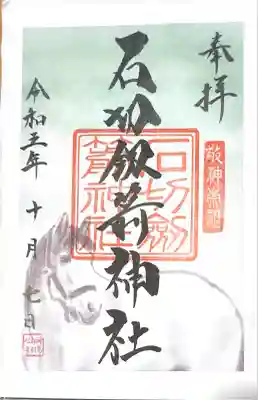 奉拝
敬神崇祖
石切劔箭神社
石切劔箭神社
令和五年十月七日